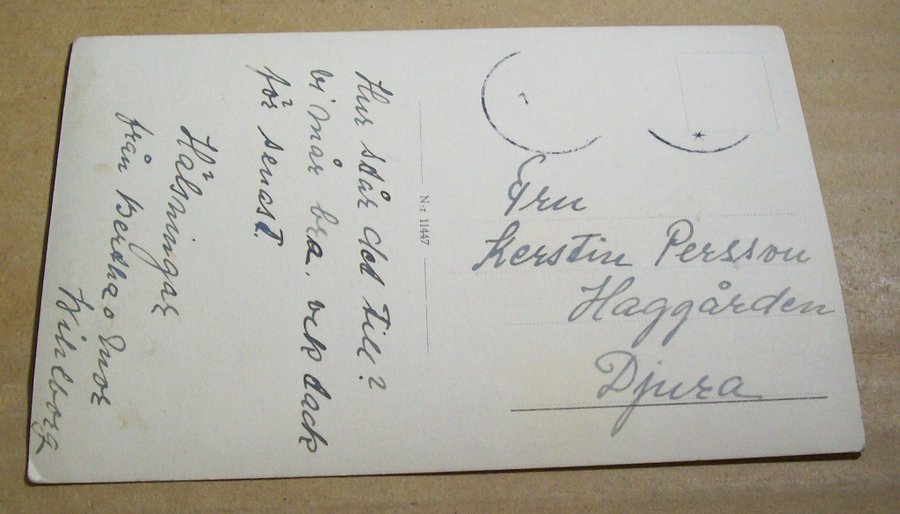 Hur står det till?
vi mår bra. ock tack
för senast.
Hälsningar
från Bertha o Ivar
Wilborg
N:r 11447
Fru
Kerstin Persson
Haggården
Djura